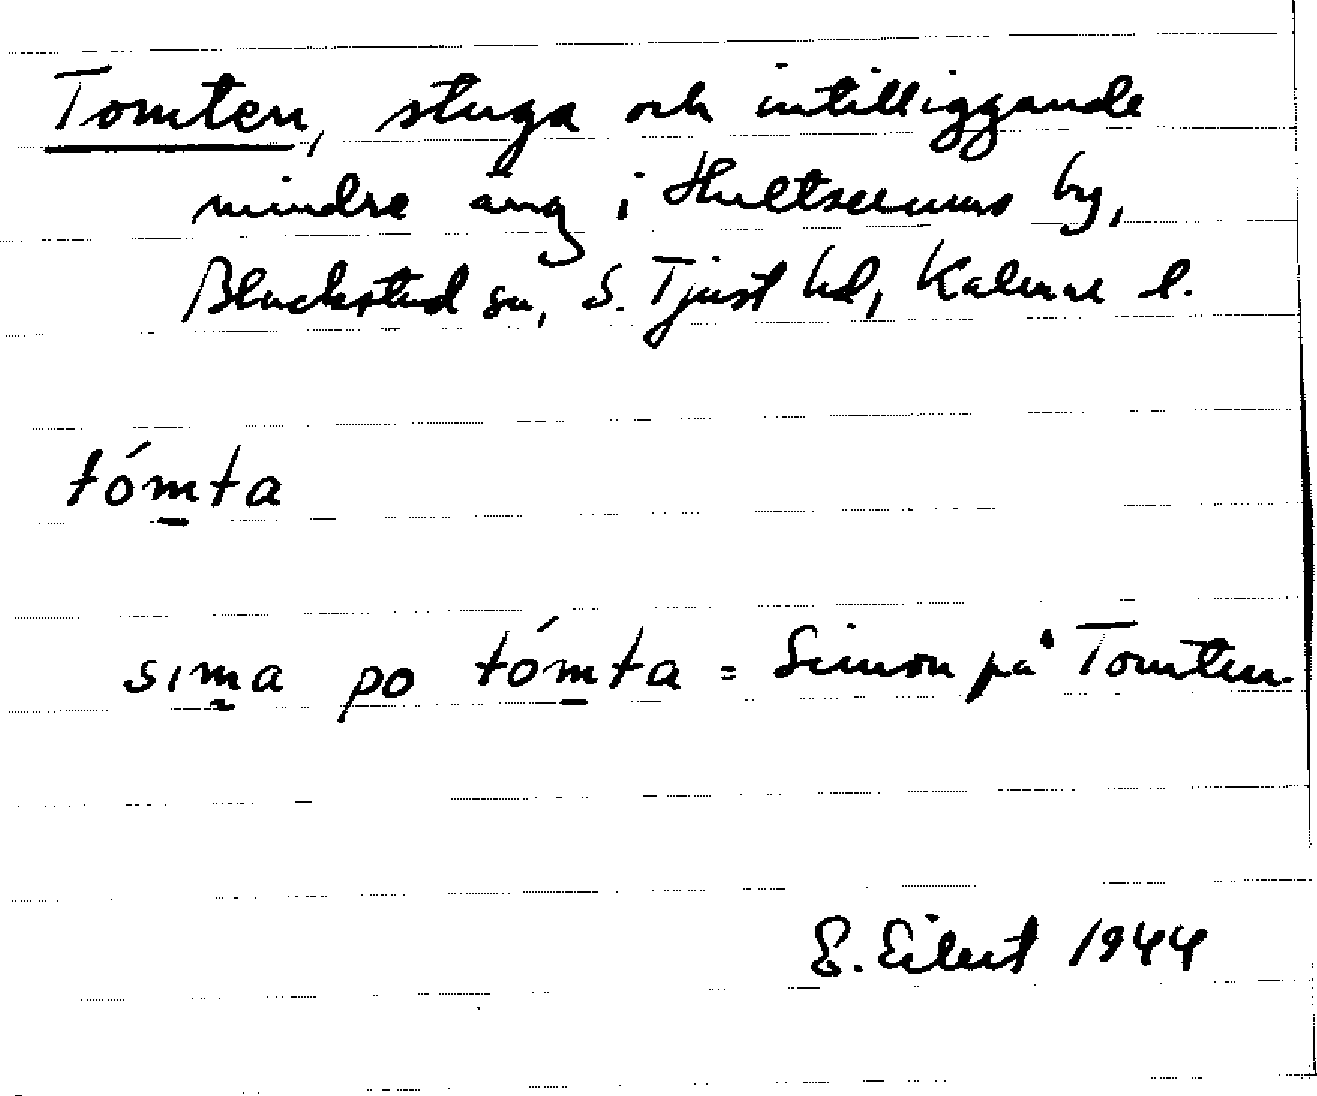 Tomten, stuga och intilliggande
mindre äng i Hultserums by,
Blackstad sn, S. Tjust hd, Kalmar l.
tómta
sima po tómta = Simon på Tomten.
E. Eilert 1944